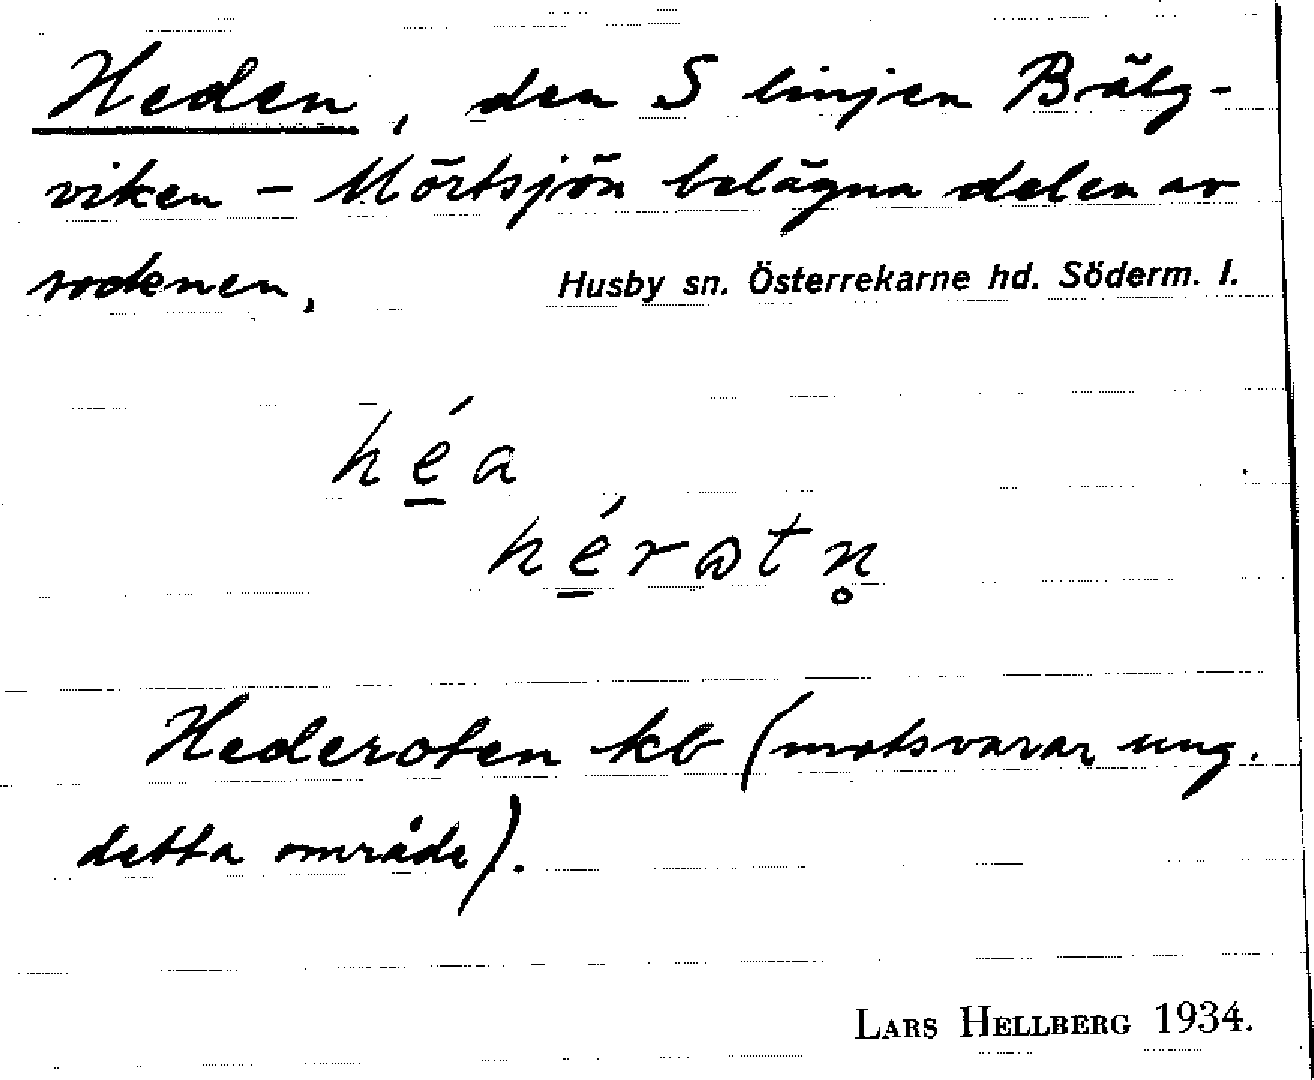 Heden, den S linjen Bälg-
viken - Mörtsjön belägna delen av
socknen.
Husby sn. Österrekarne hd. Söderm. l.
héa
hérωtn̥
Hederoten kb (motsvarar ung.
detta område).
LARS HELLBERG 1934.